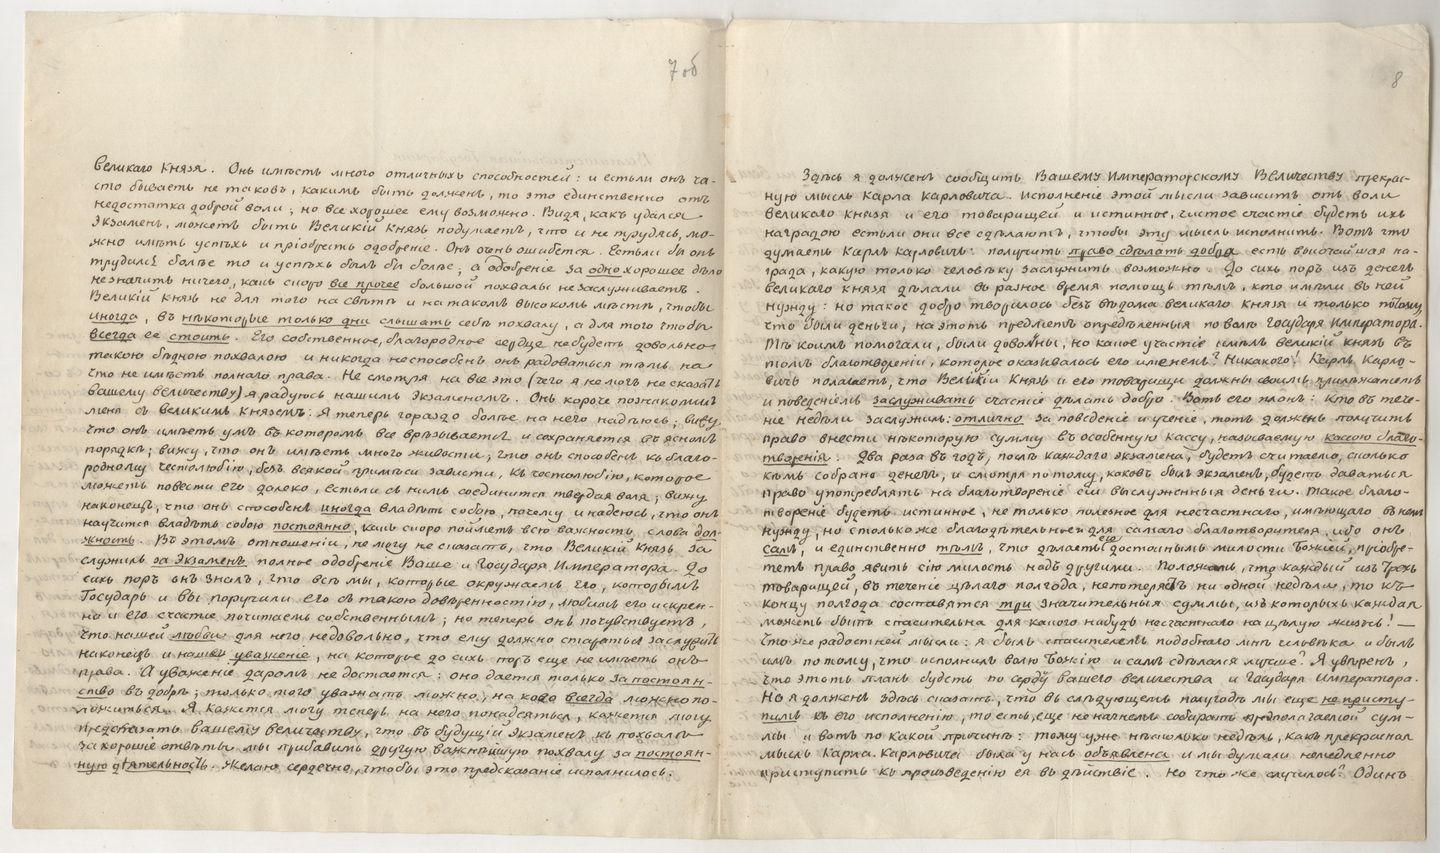 7 об
Великаго Князя. Онъ имѣетъ много отличныхъ способностей: и естьли онъ ча-
сто бываетъ не таковъ, какимъ быть долженъ, то это единственно отъ
недостатка доброй воли; но все хорошее ему возможно. Видя, какъ удался
Экзаменъ, можетъ быть Великій Князь подумаетъ, что и не трудясь, мо-
жно имѣть успѣхъ и пріобрѣсть одобреніе. Онъ очень ошибется. Естьли бы онъ
трудился болѣе то и успѣхъ былъ бы болѣе; а одобреніе за одно хорошее дѣло
не значитъ ничего, какъ скоро все прочее большой похвалы не заслуживаетъ.
Великій Князь не для того на свѣтѣ и на такомъ высокомъ мѣстѣ, чтобы
иногда, въ нѣкоторые только дни слышать себѣ похвалу, а для того чтобы
всегда ее стоить. Его собственное, благородное сердце не будетъ довольно
такою бѣдною похвалою и никогда неспособенъ онъ радоваться тѣмъ на
что не имѣетъ полнаго права. Не смотря на все это (чего я не могъ не сказать
вашему величеству) я радуюсь нашимъ Экзаменомъ. Онъ короче познакомилъ
меня съ великимъ Княземъ: Я теперь гораздо болѣе на него надѣюсь; вижу
что онъ имѣетъ умъ въ которомъ все врѣзывается и сохраняется въ ясномъ
порядкѣ; вижу, что онъ имѣетъ много живости, что онъ способенъ къ благо-
родному честолюбію, безъ всякой примѣси зависти, къ честолюбію, которое
можетъ повести его далеко, естьли съ нимъ соединится твердая воля; вижу
наконецъ, что онъ способенъ иногда владѣть собою, почему и надеюсь, что онъ
научится владѣть собою постоянно, какъ скоро пойметъ всю важность слова дол-
жность. Въ этомъ отношеніи, не могу не сказать, что Великій Князь за
служилъ за Экзаменъ полное одобреніе Ваше и Государя Императора. До
сихъ поръ онъ зналъ, что всѣ мы, которые окружаемъ Его, которымъ
Государь и вы поручили его съ такою довѣренностію, любимъ его искрен-
но и его счастіе почитаемъ собственнымъ; но теперь онъ почувствуетъ,
что нашей любви для него недовольно, что ему должно стараться заслужить
наконецъ и наше уваженіе, на которое до сихъ поръ еще не имѣетъ онъ
права. А уваженіе даромъ не достается: оно дается только за постоян-
ство въ добрѣ; только того уважать можно, на кого всегда можно по-
ложиться. Я кажется могу теперь на него понадѣяться, кажется могу
предсказать вашему величеству, что въ будущій экзаменъ къ похвалѣ
за хорошіе отвѣты мы прибавимъ другую важнѣйшую похвалу за постоян-
ную дѣятельность. Желаю сердечно, чтобы это предсказаніе исполнилось.
8
Здѣсь я долженъ сообщить Вашему Императорскому Величеству прекрас-
ную мысль Карла Карловича. исполненіе этой мысли зависитъ отъ воли
великаго князя и его товарищей и истинное, чистое счастіе будетъ ихъ
наградою естьли они все сдѣлаютъ, чтобы эту мысль исполнить. Вотъ что
думаетъ Карлъ Карловичъ: получить право сдѣлать добро есть высочайшая на-
града, какую только человѣку заслужить возможно. До сихъ поръ изъ денегъ
великаго князя дѣлали въ разное время помощь тѣмъ, кто имѣли въ ней
нужду: но такое добро творилось безъ вѣдома великаго князя и только потому,
что были деньги, на этотъ предметъ опредѣленныя по волѣ Государя Императора.
Тѣ коимъ помогали, были довольны; но какое участіе имѣлъ великій князь въ
томъ благотвореніи, которое оказывалось его именемъ? Никакого! Карлъ Карло-
вичь полагаетъ, что Великій Князь и его товарищи должны своимъ прилѣжаніемъ
и поведеніемъ заслуживать счастіе дѣлать добро. Вотъ его планъ: Кто въ тече-
ніе недѣли заслужилъ: отлично за поведеніе и ученіе, тотъ долженъ получить
право внести нѣкоторую сумму въ особенную кассу, называемую кассою благо-
творенія. Два раза въ годъ, послѣ каждаго экзамена, будетъ считаемо, сколько
кѣмъ собрано денегъ, и смотря по тому, каковъ былъ экзаменъ, будетъ даваться
право употреблять на благотвореніе сіи выслуженныя деньги. Такое благо-
твореніе будетъ истинное, не только полезное для несчастнаго, имѣющаго въ немъ
нужду, но столько же благодѣтельное и для самаго благотворителя, ибо онъ
самъ, и единственно тѣмъ, что дѣлаетъ себя достойнымъ милости Божіей, пріобрѣ-
тетъ право явить сію милость надъ другими. Положимъ, что каждый изъ трехъ
товарищей, въ теченіе цѣлаго полгода, не потеряетъ ни одной недѣли, то къ
концу полгода составятся три значительныя суммы, изъ которыхъ каждая
можетъ быть спасительна для какого нибудь несчастнаго на цѣлую жизнь! —
Что же радостнѣй мысли: я былъ спасителемъ подобнаго мнѣ человѣка и былъ
имъ потому, что исполнилъ волю Божію и самъ сдѣлался лучше? Я увѣренъ,
что этотъ планъ будетъ по сердцу вашего величества и Государя Императора.
Но я долженъ здѣсь сказать, что въ слѣдующемъ полугодѣ мы еще не присту-
пимъ къ его исполненію, то есть, еще не начнемъ собирать предполагаемой сум-
мы и вотъ по какой причинѣ: тому уже нѣсколько недѣль, какъ прекрасная
мысль Карла Карловича была у насъ объявлена и мы думали немедленно
приступить къ произведенію ея въ дѣйствіе. Но что же случилось? Одинъ